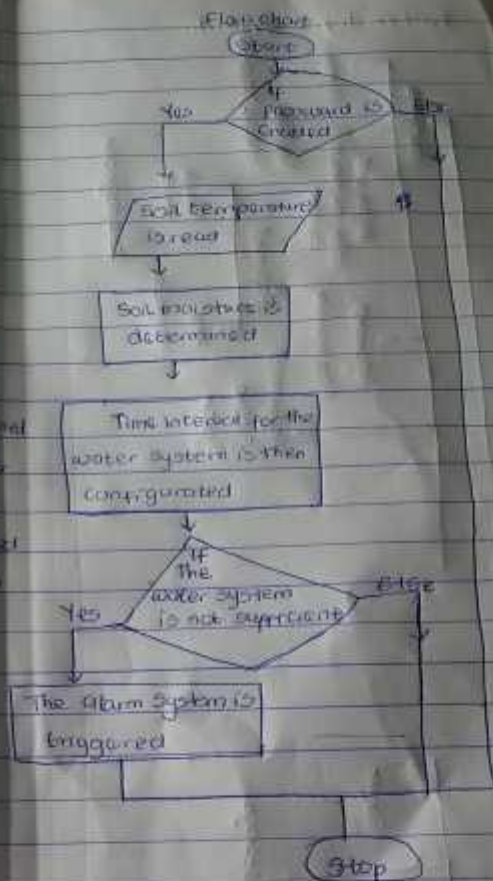 Flow chart
Start
If
Password is
Created
Yes
Else
Soil temperature
is read
Soil moisture is
determined
Time interval for the
water system is then
configurated
If
The
water system
is not sufficient
Yes
Else
The alarm System is
triggared
Stop